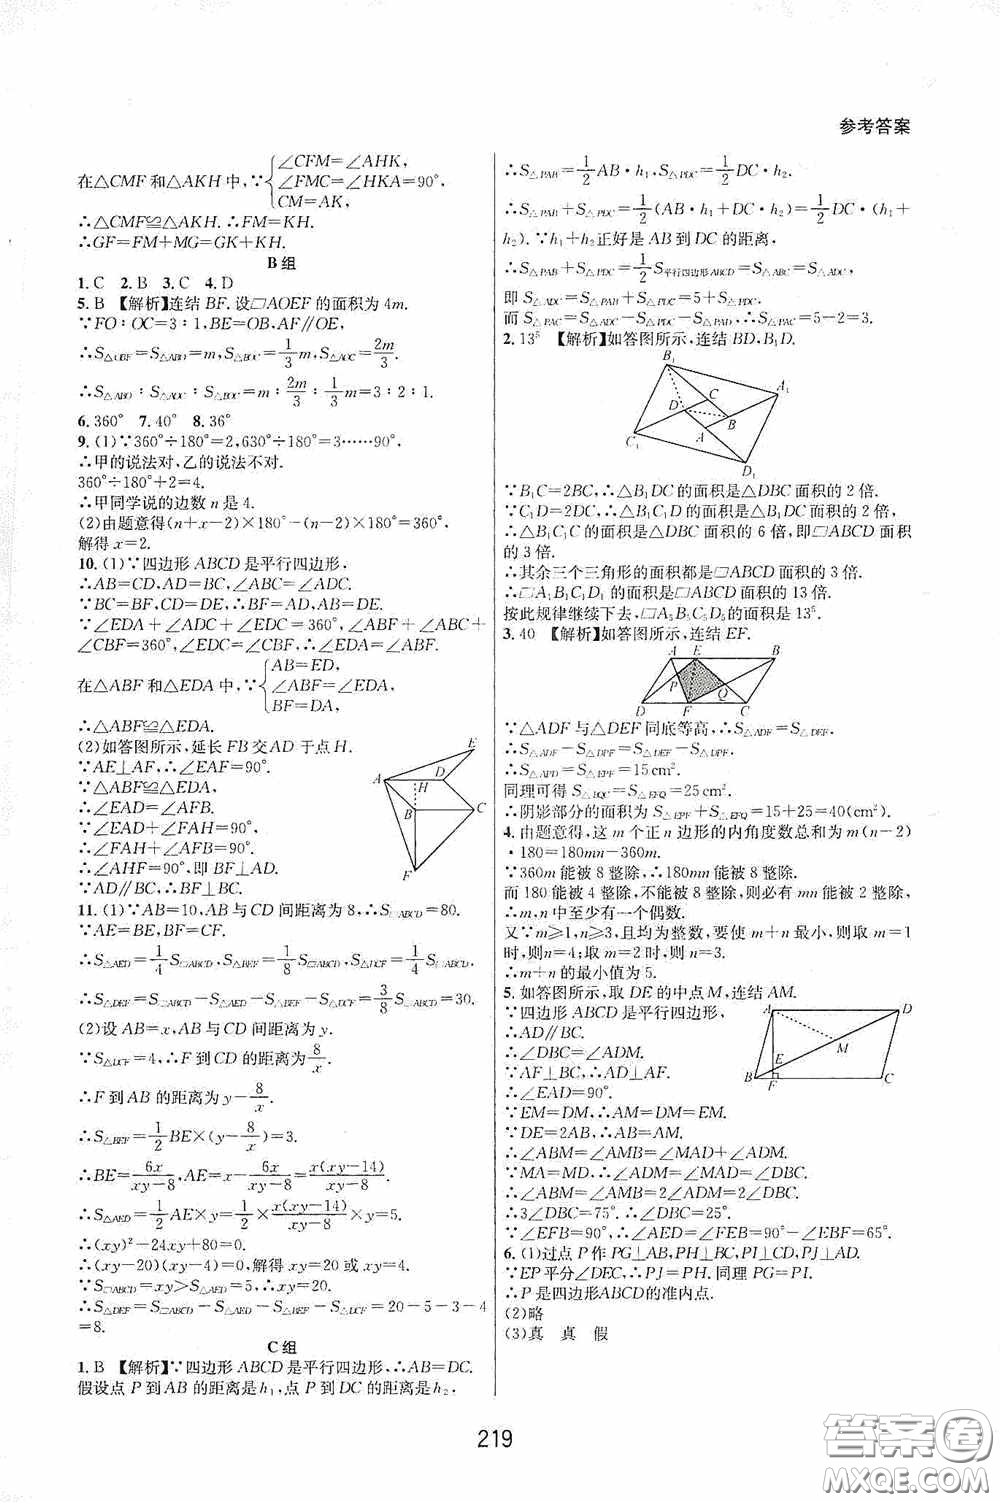 参考答案
在△CMF 和△AKH 中,∵{∠CFM=∠AHK,
∠FMC=∠HKA=90°,
CM=AK,
∴△CMF≌△AKH.∴FM=KH.
∴GF=FM+MG=GK+KH.
B 组
1. C 2. B 3. C 4. D
5. B 【解析】连结 BF.设▱AOEF 的面积为 4m.
∵FO∶OC=3∶1,BE=OB,AF∥OE,
∴S△OBF=S△ABO=m,S△BOC=1/3 m,S△AOC=2m/3.
∴S△ABO∶S△AOC∶S△BOC=m∶2m/3∶1/3 m=3∶2∶1.
6. 360° 7. 40° 8. 36°
9. (1)∵360°÷180°=2,630°÷180°=3……90°.
∴甲的说法对,乙的说法不对.
360°÷180°+2=4.
∴甲同学说的边数 n 是 4.
(2)由题意得(n+x-2)×180°-(n-2)×180°=360°,
解得 x=2.
10. (1)∵四边形 ABCD 是平行四边形,
∴AB=CD,AD=BC,∠ABC=∠ADC.
∵BC=BF,CD=DE,∴BF=AD,AB=DE.
∵∠EDA+∠ADC+∠EDC=360°,∠ABF+∠ABC+
∠CBF=360°,∠EDC=∠CBF,∴∠EDA=∠ABF.
在△ABF 和△EDA 中,∵{AB=ED,
∠ABF=∠EDA,
BF=DA,
∴△ABF≌△EDA.
(2)如答图所示,延长 FB 交 AD 于点 H.
∵AE⊥AF,∴∠EAF=90°.
∵△ABF≌△EDA,
∴∠EAD=∠AFB.
∵∠EAD+∠FAH=90°,
∴∠FAH+∠AFB=90°.
∴∠AHF=90°,即 BF⊥AD.
∵AD∥BC,∴BF⊥BC.
A D E H B C F
11. (1)∵AB=10,AB 与 CD 间距离为 8,∴S▱ABCD=80.
∵AE=BE,BF=CF.
∴S△AED=1/4 S▱ABCD,S△BEF=1/8 S▱ABCD,S△DCF=1/4 S▱ABCD.
∴S△DEF=S▱ABCD-S△AED-S△BEF-S△DCF=3/8 S▱ABCD=30.
(2)设 AB=x,AB 与 CD 间距离为 y.
∵S△DCF=4,∴F 到 CD 的距离为 8/x.
∴F 到 AB 的距离为 y-8/x.
∴S△BEF=1/2 BE×(y-8/x)=3.
∴BE=6x/(xy-8),AE=x-6x/(xy-8)=x(xy-14)/(xy-8).
∴S△AED=1/2 AE×y=1/2×x(xy-14)/(xy-8)×y=5.
∴(xy)²-24xy+80=0.
∴(xy-20)(xy-4)=0,解得 xy=20 或 xy=4.
∵S▱ABCD=xy>S△AED=5,∴xy=20.
∴S△DEF=S▱ABCD-S△AED-S△BEF-S△DCF=20-5-3-4
=8.
C 组
1. B 【解析】∵四边形 ABCD 是平行四边形,∴AB=DC.
假设点 P 到 AB 的距离是 h₁,点 P 到 DC 的距离是 h₂,
∴S△PAB=1/2 AB·h₁,S△PDC=1/2 DC·h₂.
∴S△PAB+S△PDC=1/2(AB·h₁+DC·h₂)=1/2 DC·(h₁+
h₂).∵h₁+h₂正好是 AB 到 DC 的距离,
∴S△PAB+S△PDC=1/2 S平行四边形ABCD=S△ABC=S△ADC,
即 S△ADC=S△PAB+S△PDC=5+S△PDC.
而 S△PAC=S△ADC-S△PDC-S△PAD,∴S△PAC=5-2=3.
2. 13⁵ 【解析】如答图所示,连结 BD,B₁D.
B₁ A₁ C D B C₁ A D₁
∵B₁C=2BC,∴△B₁DC 的面积是△DBC 面积的 2 倍.
∵C₁D=2DC,∴△B₁C₁D 的面积是△B₁DC 面积的 2 倍,
∴△B₁C₁C 的面积是△DBC 面积的 6 倍,即▱ABCD 面积
的 3 倍.
∴其余三个三角形的面积都是▱ABCD 面积的 3 倍.
∴▱A₁B₁C₁D₁ 的面积是▱ABCD 面积的 13 倍.
按此规律继续下去,▱A₅B₅C₅D₅的面积是 13⁵.
3. 40 【解析】如答图所示,连结 EF.
A E B P Q D F C
∵△ADF 与△DEF 同底等高,∴S△ADF=S△DEF.
∴S△ADF-S△DPF=S△DEF-S△DPF.
∴S△APD=S△EPF=15 cm².
同理可得 S△BQC=S△EFQ=25 cm².
∴阴影部分的面积为 S△EPF+S△EFQ=15+25=40(cm²).
4. 由题意得,这 m 个正 n 边形的内角度数总和为 m(n-2)
·180=180mn-360m.
∵360m 能被 8 整除,∴180mn 能被 8 整除.
而 180 能被 4 整除,不能被 8 整除,则必有 mn 能被 2 整除,
∴m,n 中至少有一个偶数.
又∵m≥1,n≥3,且均为整数,要使 m+n 最小,则取 m=1
时,则n=4;取 m=2 时,则 n=3.
∴m+n 的最小值为 5.
5. 如答图所示,取 DE 的中点 M,连结 AM.
∵四边形 ABCD 是平行四边形,
∴AD∥BC.
∴∠DBC=∠ADM.
∵AF⊥BC,∴AD⊥AF.
∴∠EAD=90°.
A D E M B F C
∵EM=DM,∴AM=DM=EM.
∵DE=2AB,∴AB=AM.
∴∠ABM=∠AMB=∠MAD+∠ADM.
∵MA=MD,∴∠ADM=∠MAD=∠DBC.
∴∠ABM=∠AMB=2∠ADM=2∠DBC.
∴3∠DBC=75°.∴∠DBC=25°.
∵∠EFB=90°,∴∠AED=∠FEB=90°-∠EBF=65°.
6. (1)过点 P 作 PG⊥AB,PH⊥BC,PI⊥CD,PJ⊥AD.
∵EP平分∠DEC,∴PJ=PH.同理 PG=PI.
∴P 是四边形ABCD的准内点.
(2)略
(3)真 真 假
219
答案圈
MXQE.COM